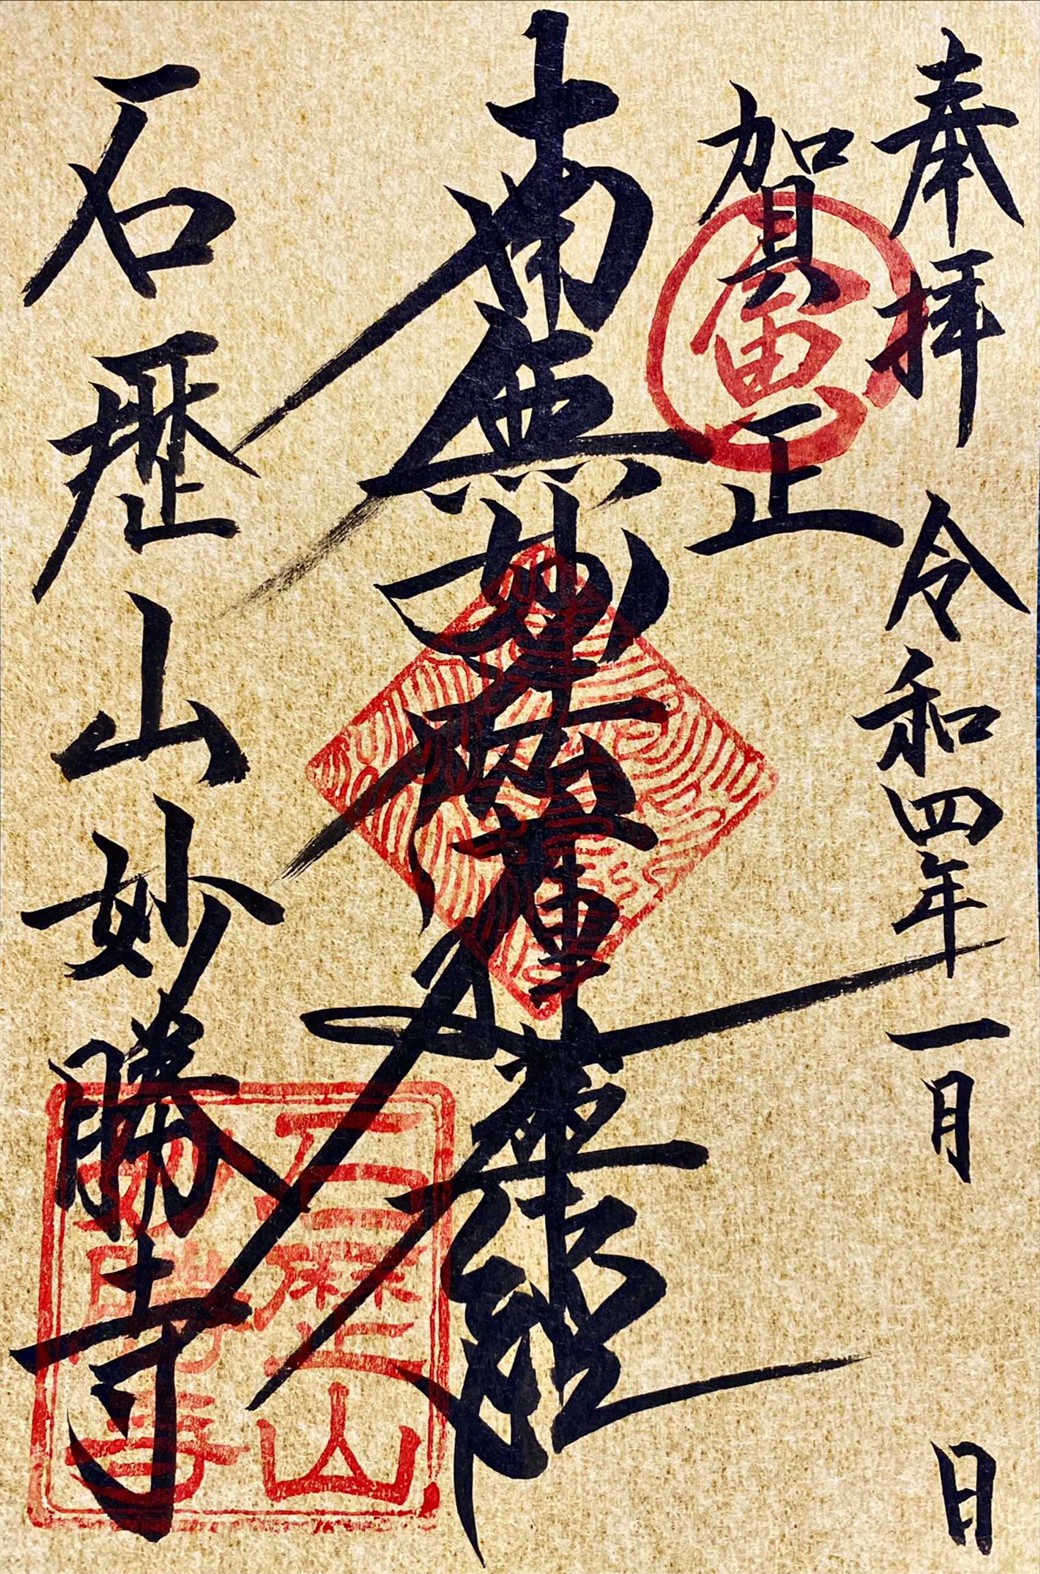 奉拝
令和四年一月 日
賀正
南無妙法蓮華経
石歴山妙勝寺
石歴山
妙勝寺